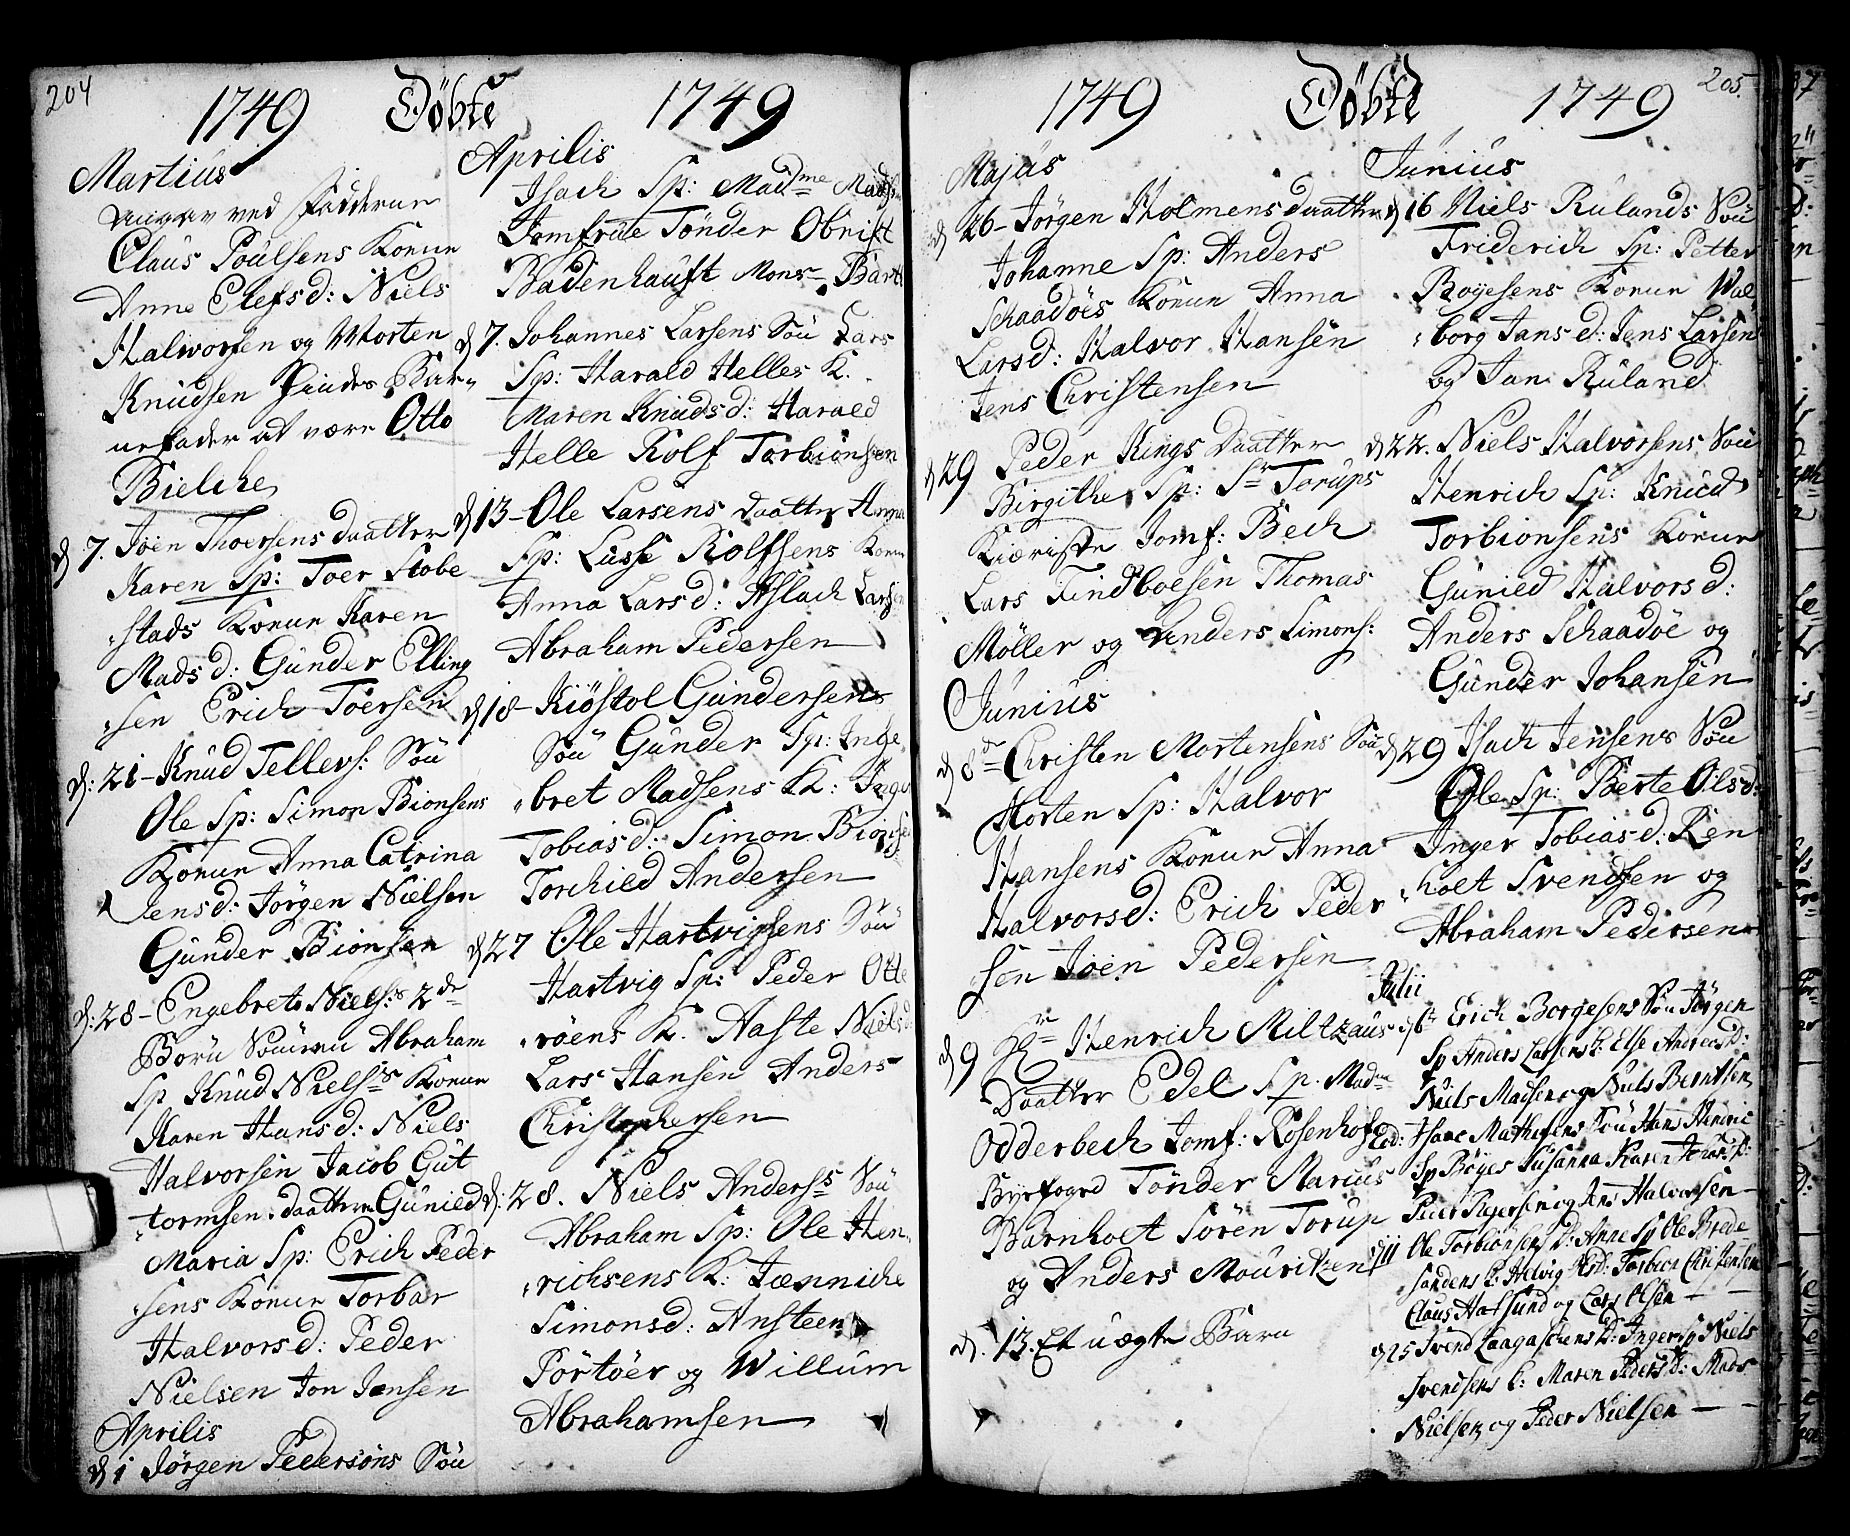 204
1749 Döbte 1749
Martius
Angav ved Fadderne
Claus Poulsens Konne
Anne Olefsd: Niels
Halvorsen og Morten
Knudsen Barn,
nefader at være Otto
Bielche
d 7. Joen Thoersens Daatter
Karen Sp: Toer Stobe
stads Konne Karen
Mads d: Gunder Elling
sen Erich Toersen
d: 21 - Knud Tellevs: Sön
Ole Sp: Simon Bionsens
Konne Anna Catrina
Jens d: Jörgen Nielsen
Gunder Bionsen
d: 28 - Engebret Niels:s 2de
Börn Sönnen Abraham
Sp Knud Niels:s Konne
Karen Hans d: Niels
Halvorsen Jacob Gut
tormsen. Daatteren Gunild
Maria Sp: Erich Peder
sens Konne Torbar
Halvors d: Peder
Nielsen Jon Jansen
Aprilis
d 1 Jörgen Pedersöns Sön
Aprilis
Isach Sp: Madme
Jomfrue Tönder Obrist
Badenhauft Mons Barth
d 7. Johannes Larsens Sön Lars
Sp: Harald Helles K.
Maren Knuds d: Harald
Helle Rolf Torbionsen
d 13 - Ole Larsens Daatter Anna
Sp: Lusse Rolfsens Konne
Anna Lars d: Aslach Larsen
Abraham Pedersen
d 18 - Kiöstol Gundersens
Sön Gunder Sp: Inge
bret Madsens K: Inger
Tobias d: Simon Bionsen
Torchild Andersen
d 27 Ole Hartvigsens Sön
Hartvig Sp: Peder Otte
röens K. Aaste Niels d
Lars Hansen Anders
Christophersen
d: 28. Niels Anders:s Sön
Abraham Sp: Ole Hen
richsens K: Jænniche
Simonsd: Ansteen
Portöer og Willum
Abrahamsen
205.
1749 Döbte 1749
Majus
d 26 - Jörgen Holmens Daatter
Johanne Sp: Anders
Schaadöes Konne Anna
Lars d: Halvor Hansen
Jens Christensen
d 29 Peder Rings Daatter
Birgithe Sp: Sr Torups
Kiæriste Jomf: Bech
Lars Findboesen Thomas
Möller og Anders Simons:
Junius
d 8de Christen Mortensens Sön
Morten Sp: Halvor
Hansens Konne Anna
Halvors d: Erich Peder
sen Joen Pedersen
d 9 Hr Henrich Miltzaus
Daatter Edel Sp. Madme
Odderbech Jomf: Rosenhof
Byefoged Tönder Marcus
Barnholt Sören Torup
og Anders Mouritzen
d. 13. Et uægte Barn
Junius
d 16 Niels Rulands Sön
Friderich Sp: Petter
Boyesens Konne Wal
borg Jans d: Jens Larsen
og Jan Ruland
d 22. Niels Halvorsens Sön
Henrich Sp: Knud
Torbionsens Konne
Gunild Halvors d:
Anders Schaadöe og
Gunder Johansen
d 29 Isach Jensens Sön
Ole Sp: Berte Ols d:
Inger Tobias d: Ren
holt Svendsen og
Abraham Pedersen
Julii
d 6t Erich Borgesens Sön Jörgen
Sp Anders Larsens K: Else Andreas D:
Niels Madsen og Niels Berntsen
Eod: Isaac Mathisens Sön Hans Henric
Sp Böyes Susanna Karen Johans D:
Peter Rejersen og Jens Halvorsen
d 11 Ole Torbiönsens D: Anne Sp Ole Brede
sandens K: Helvig D: Torbion Christensen
Claus Hafsund og Lars Olsen
d 25 Svend Laagaschens D: Inger Sp Niels
Svendsens K: Maren Peders D: Mads
Nielsen og Peder Nielsen